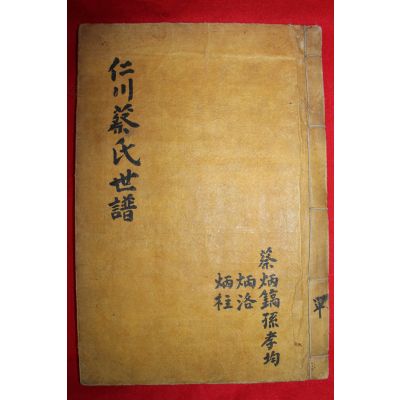 仁川蔡氏世譜
蔡炳鎬孫孝均
炳洛
炳柱
單